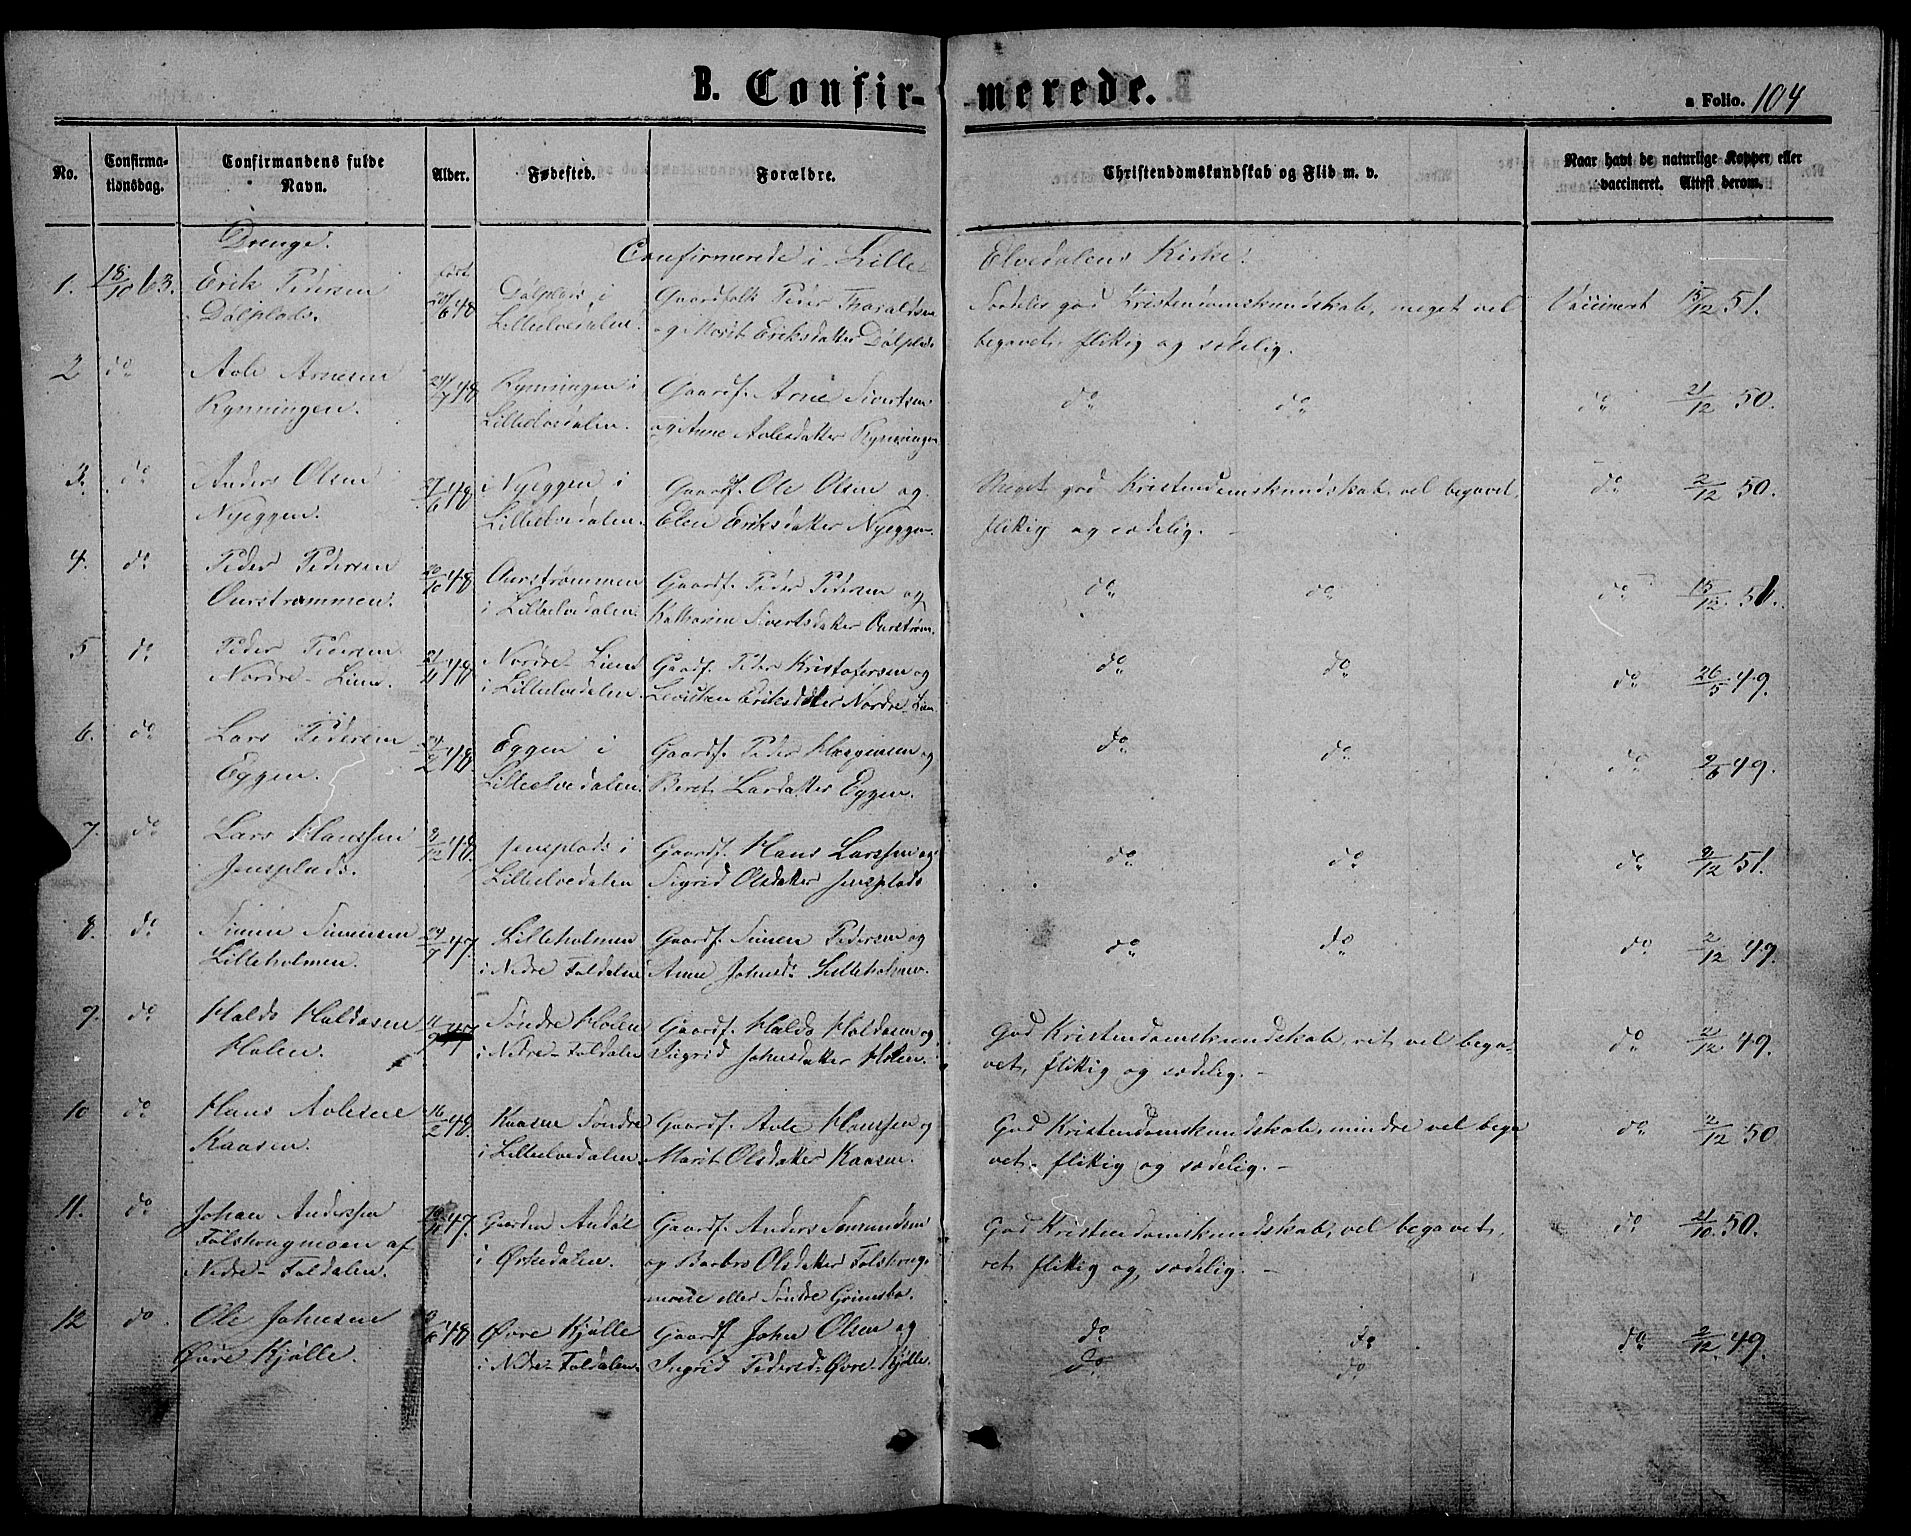 B. Confir- merede. a Folio. 104
No. Confirma-tionsdag. Confirmandens fulde Navn. Alder. Fødested. Forældre. Christendomskundskab og Flid m. v. Naar havt de naturlige Kopper eller vaccineret. Attest derom.
Drenge. Confirmerede i Lille- Elvedalens Kirke.
1. 18/10 63. Erik Pedersen født Dølplads i Gaardfolk Peder Saadeles god Kristendomskundskab, meget vel Vaccineret 15/12 51.
Dølplads. 20/6 48 Lilleelvedalen. og Marit Eriksdatter Dølplads begavet, flittig og sædelig.
2 do Aole Arnesen 24/7 48 Rynningen i Gaardf. Arne Sivertsen do do do 21/12 50.
Rynningen. Lilleelvedalen. og Anne Aolesdatter Rynningen
3. do Anders Olsen 27/6 48 Nyeggen i Gaardf. Ole Olsen og Meget god Kristendomskundskab, vel begavet, do 2/12 50.
Nyeggen. Lilleelvedalen. Elen Eriksdatter Nyeggen flittig og sædelig. -
4. do Peder Pedersen 20/10 48 Aurstrømmen Gaardf. Peder Pedersen og do do do 15/12 51.
Ourstrømmen. i Lilleelvedalen. Sivertsdatter Ourstrøm.
5 do Peder Pedersen 48 Nordre-Lien Gaardf. Peder Kristofersen og do do do 26/5 49.
Nordre-Lien. i Lilleelvedalen. Eriksdatter Nordre-Lien
6. do Lars Pedersen 48. Eggen i Gaardf. Peder og do do do 2/6 49.
Eggen. Lilleelvedalen. Beret Larsdatter Eggen.
7. do Lars Hanssen 2/12 48. Jensplads i Gaardf. Hans Larssen og do do do 2/12 51.
Jensplads. Lilleelvedalen Sigrid Olsdatter Jensplads
8. do Simen Simensen 29/7 47. Lilleholmen Gaardf. Simen Pedersen og do do do 2/12 49.
Lilleholmen. i Nedre Foldalen Anne Johnsd. Lilleholmen.
9. do Haldo Haldosen 11/9 47 Søndre Holen Gaardf. Haldo Haldosen og God Kristendomskundskab, ret vel bega- do 2/12 49.
Holen. i Nedre-Foldalen Sigrid Johnsdatter Holen. vet, flittig og sædelig. -
10 do Hans Aolesen 16/2 48. Kaasen Søndre Gaardf. Aole Hanssen og God Kristendomskundskab, mindre vel bega- do 2/12 50
Kaasen. i Lilleelvedalen. Marit Olsdatter Kaasen. vet, flittig og sædelig. -
11. do Johan Anderssen 47. Gaarden Gaardf. Anders og God Kristendomskundskab, vel begavet, do 21/10 50.
af i Ørkedalen. og Barbro Olsdatter ret flittig og sædelig. -
Nedre-Foldalen. eller Søndre Grimsbo.
12 do Ole Johnsen 48 Øvre Kjølle Gaardf. John Olsen og do do do 2/12 49.
Øvre Kjølle. i Nedre-Foldalen. Ingrid Pedersd. Øvre Kjølle. do do